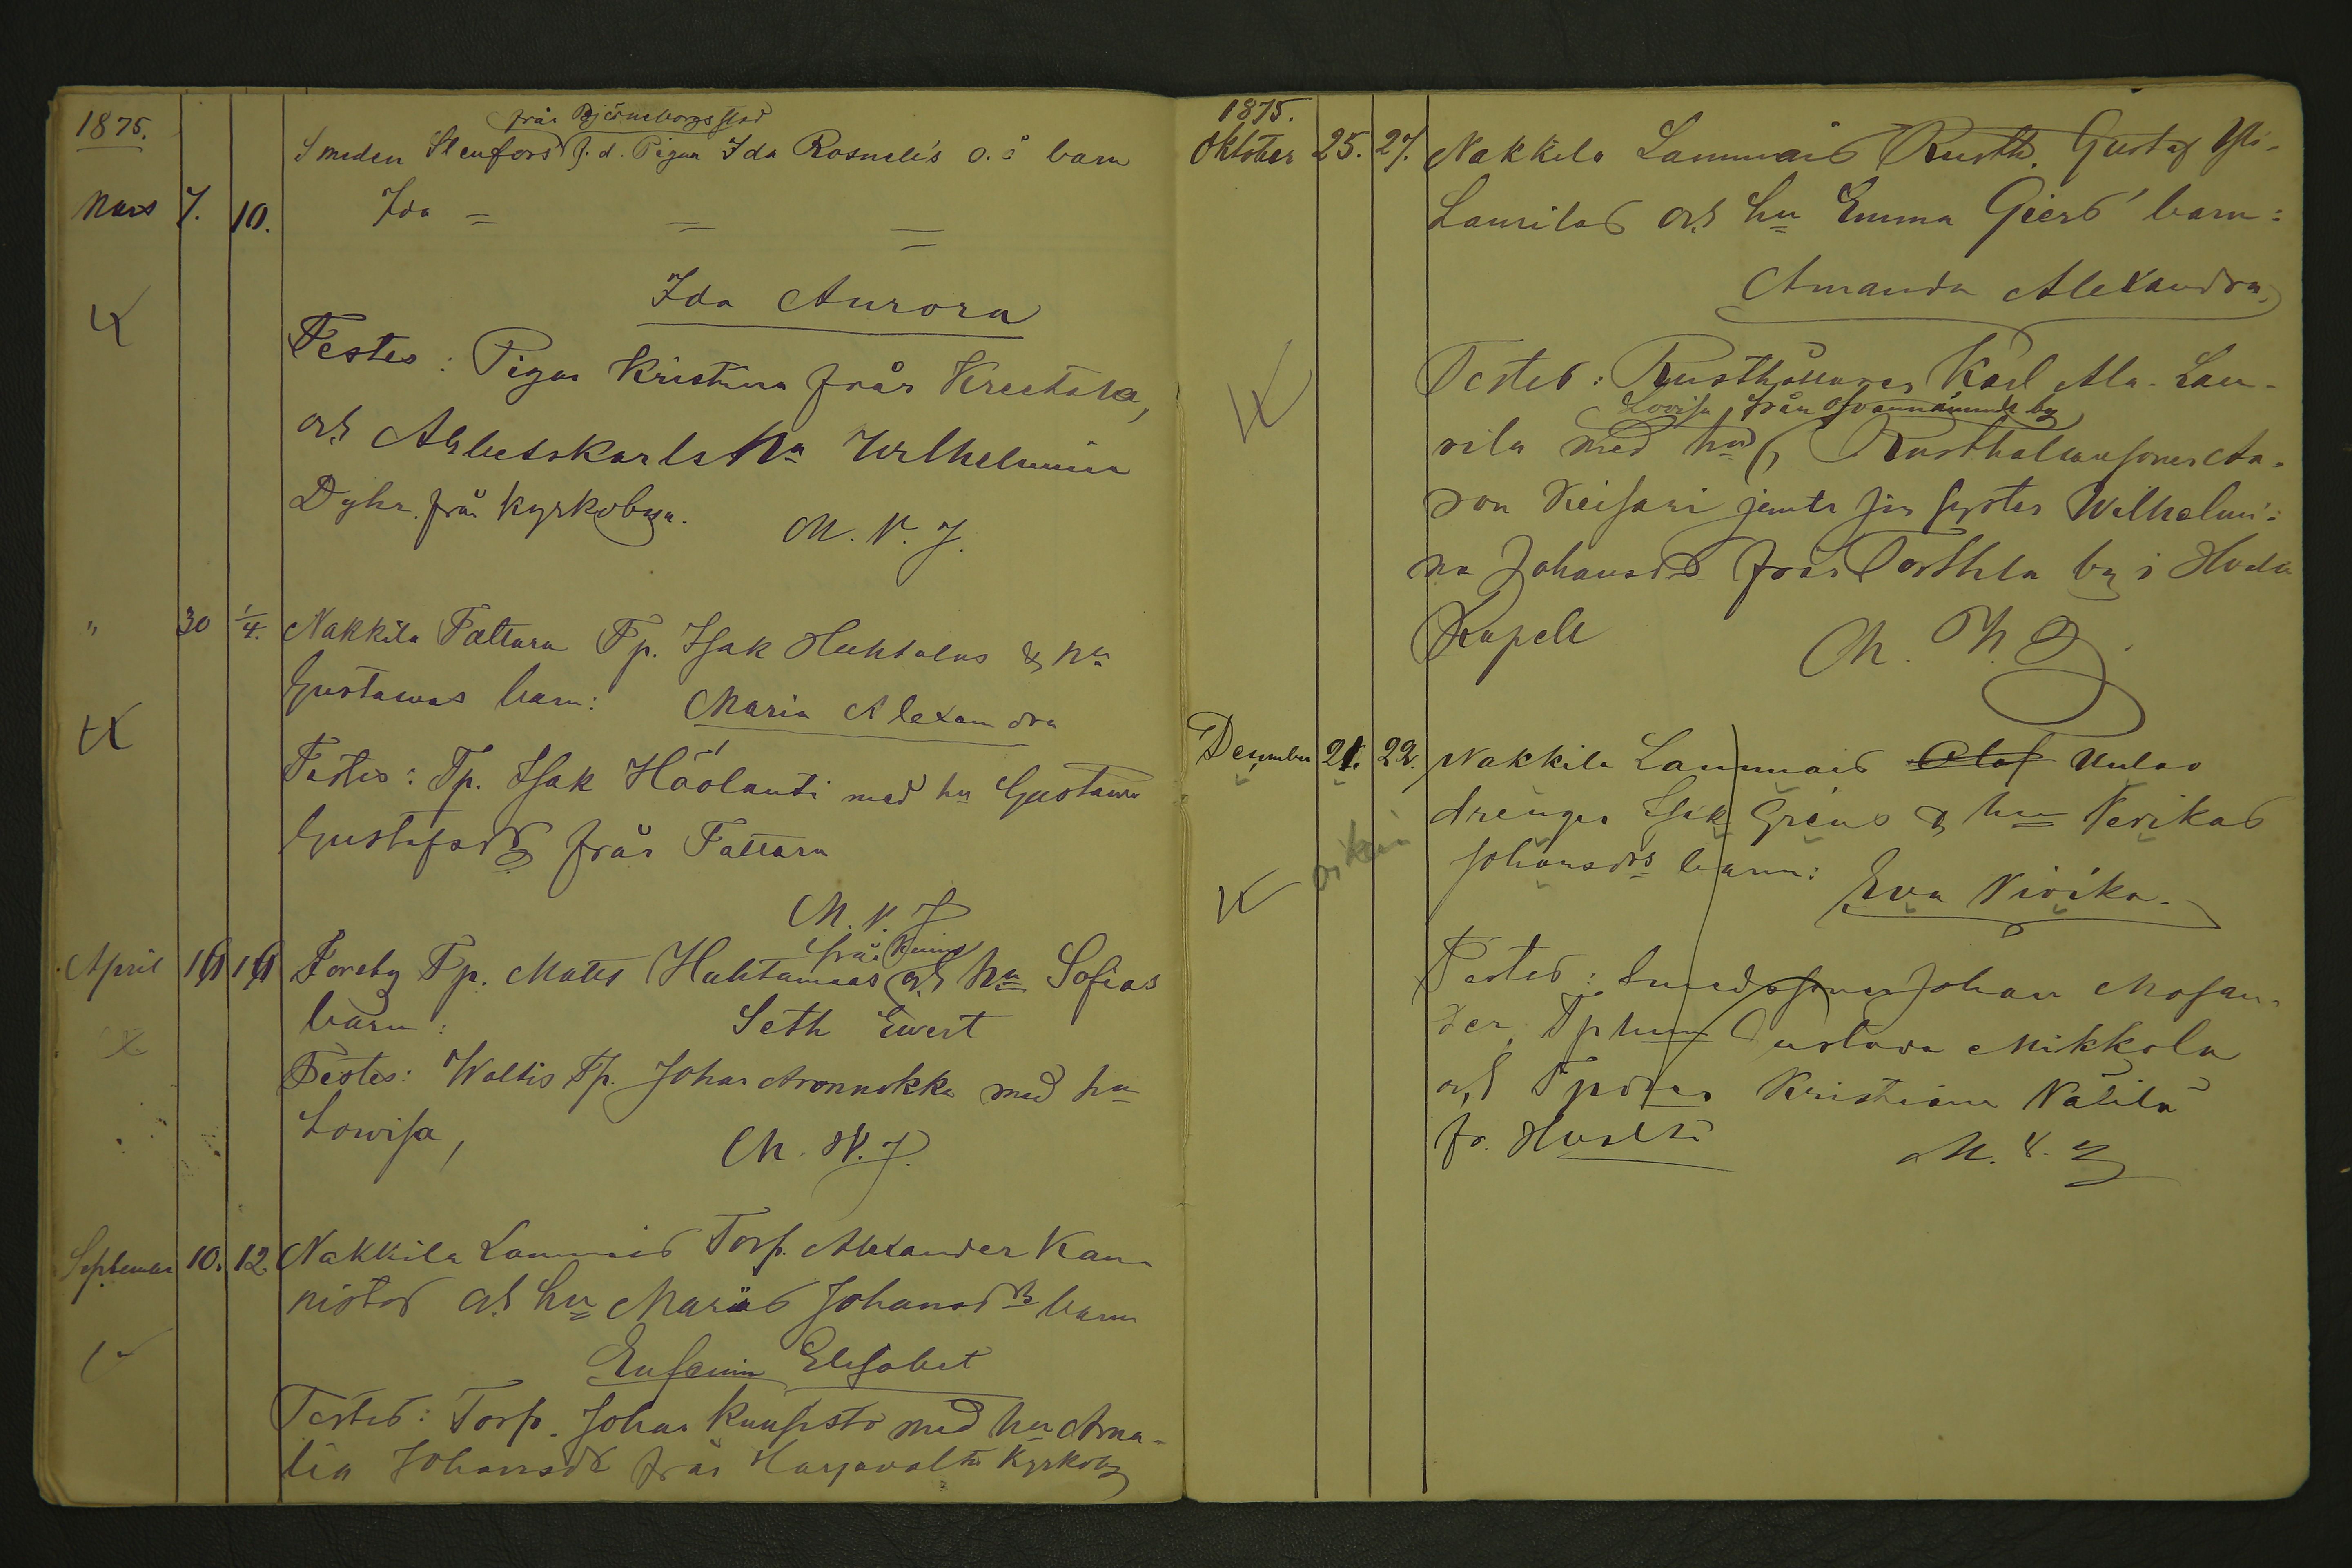 1875.
från Björneborgs stad
Smeden Stenfors f. d. Pigan Ida Rosneli's o. ä barn
Mars 7. 10. Ida = = =
Ida Aurora
Testes: Pigan Kristina från
och Arbetskarls hu Wilhelmina
Dyhr. från Kyrkobyn. M. N. J.
" 30 1/4. Nakkila Tattara Tp. Isak Huhtalas & hu
Gustawas barn: Maria Alexandra
Testes: Tp. Isak Häölanti med hu Gustawa
Gustafsdr från Tattara
M. N. J
från
April Foreby Tp. Matts Huhtamaas och hu Sofias
barn: Seth Ewert
Testes: Waltis Tp. Johan Aronnokka med hu
Lowisa, M. N. J.
September 10. 12. Nakkila Lammais Torp. Alexander Kan-
nistos och hu Marias Johansdrs barn
Eufemia Elisabet
Testes: Torp. Johan Kuusisto med hu Ama-
lia Johansdr från Harjavalta Kyrkoby
1875.
Oktober 25. 27. Nakkila Lammais Rusth. Gustaf Yli-
Laurilas och hu Emma Giers' barn:
Amanda Alexandra.
Testes: Rusthållaren Karl Ala-Lau-
Lovisa från ofvannämnde by
rila med hu, Rusthållaresonen Aa-
ron Keisari jemte sin syster Wilhelmi-
na Johansdr från Torttila by i
Kapell M. N. J.
December 21. 22. Nakkila Lammais Olof Uulas
drengen Isak Gréns & hu Verikas
Johansdrs barn:
Eva Virika.
Testes: Smedssonen Johan Mosan-
der, Tp hun Gustava Mikkola
och Tpdren Kristiana Näsilä
fr.
M. N. J